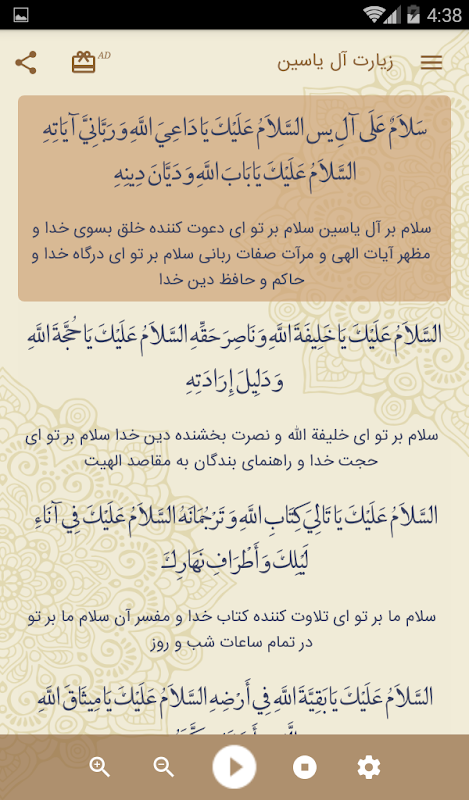 4:38
زیارت آل یاسین
AD
سَلاَمٌ عَلَى آلِ يس السَّلاَمُ عَلَيْكَ يَا دَاعِيَ اللَّهِ وَ رَبَّانِيَّ آيَاتِهِ
السَّلاَمُ عَلَيْكَ يَا بَابَ اللَّهِ وَ دَيَّانَ دِينِهِ
سلام بر آل یاسین سلام بر تو ای دعوت کننده خلق بسوی خدا و
مظهر آیات الهی و مرآت صفات ربانی سلام بر تو ای درگاه خدا و
حاکم و حافظ دین خدا
السَّلاَمُ عَلَيْكَ يَا خَلِيفَةَ اللَّهِ وَ نَاصِرَ حَقِّهِ السَّلاَمُ عَلَيْكَ يَا حُجَّةَ اللَّهِ
وَ دَلِيلَ إِرَادَتِهِ
سلام بر تو ای خلیفة الله و نصرت بخشنده دین خدا سلام بر تو ای
حجت خدا و راهنمای بندگان به مقاصد الهیت
السَّلاَمُ عَلَيْكَ يَا تَالِيَ كِتَابِ اللَّهِ وَ تَرْجُمَانَهُ السَّلاَمُ عَلَيْكَ فِي آنَاءِ
لَيْلِكَ وَ أَطْرَافِ نَهَارِكَ
سلام ما بر تو ای تلاوت کننده کتاب خدا و مفسر آن سلام ما بر تو
در تمام ساعات شب و روز
السَّلاَمُ عَلَيْكَ يَا بَقِيَّةَ اللَّهِ فِي أَرْضِهِ السَّلاَمُ عَلَيْكَ يَا مِيثَاقَ اللَّهِ